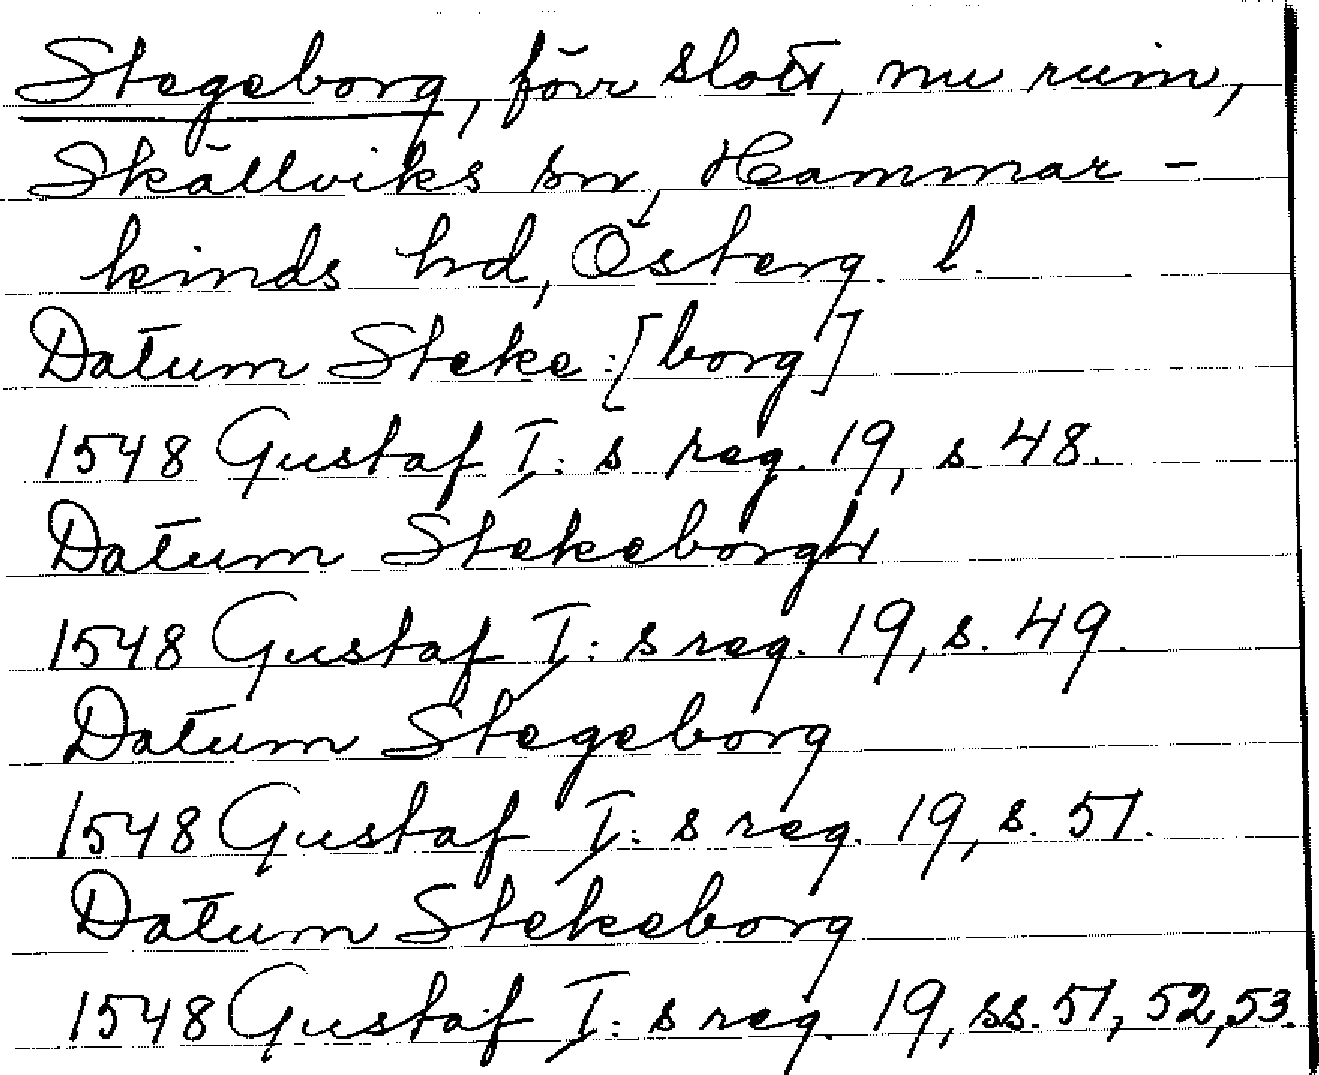 Stegeborg, förr slott, nu ruin,
Skällviks sn, Hammar-
kinds hd, Österg. l.
Datum Steke:[borg]
1548 Gustaf I:s reg. 19, s. 48.
Datum Stekeborgh
1548 Gustaf I:s reg. 19, s. 49.
Datum Stegeborg
1548 Gustaf I:s reg. 19, s. 51.
Datum Stekeborg
1548 Gustaf I:s reg. 19, ss. 51, 52, 53.